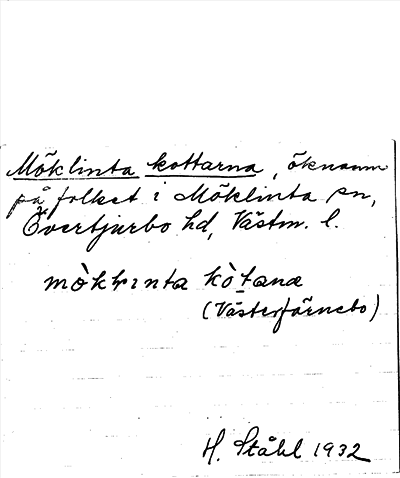 Möklinta kottarna, öknamn
på folket i Möklinta sn,
Övertjurbo hd, Västm. l.
mòkḷinta kò̱tana
(Västerfärnebo)
H. Ståhl 1932